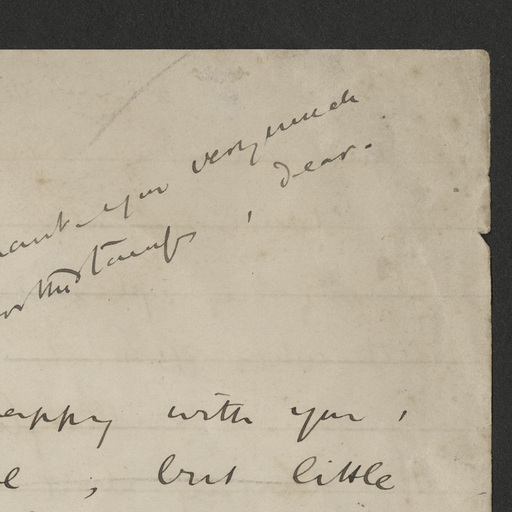 hank you very much
for the stamps, dear.
happy with you,
; but little